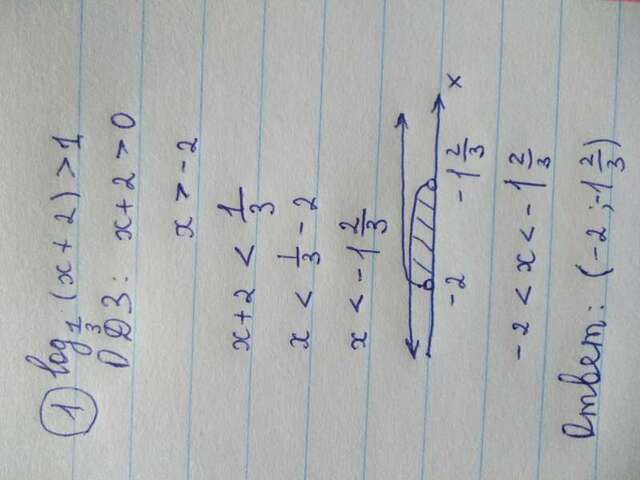 ① log_{1/3}(x+2) > 1
ОДЗ: x+2 > 0
x > -2
x+2 < 1/3
x < 1/3 - 2
x < -1 2/3
-2 -1 2/3 x
-2 < x < -1 2/3
Ответ: (-2; -1 2/3)